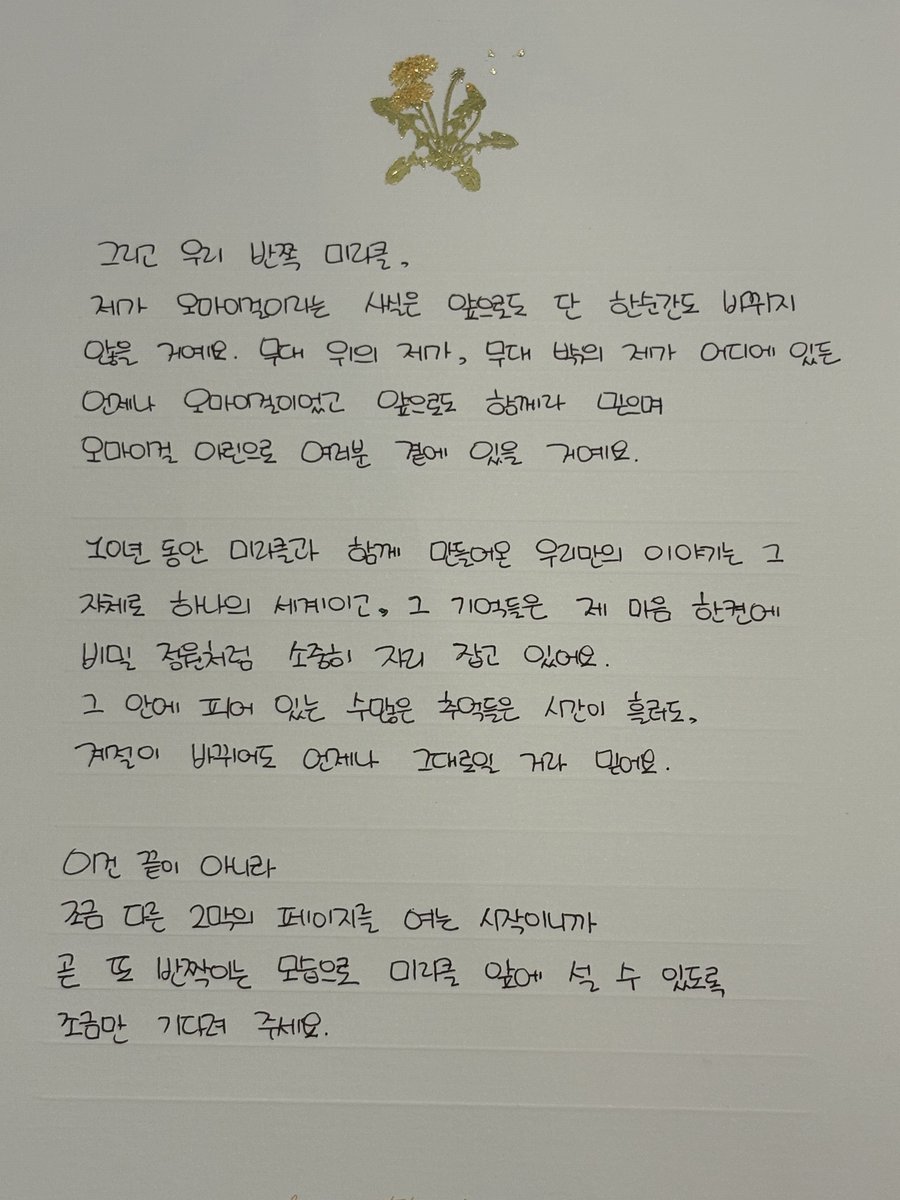 그리고 우리 반쪽 미라클,
제가 오마이걸이라는 사실은 앞으로도 단 한순간도 바뀌지
않을 거예요. 무대 위의 제가, 무대 밖의 제가 어디에 있든
언제나 오마이걸이었고 앞으로도 함께라 믿으며
오마이걸 아린으로 여러분 곁에 있을 거예요.
10년 동안 미라클과 함께 만들어온 우리만의 이야기는 그
자체로 하나의 세계이고, 그 기억들은 제 마음 한켠에
비밀 정원처럼 소중히 자리 잡고 있어요.
그 안에 피어 있는 수많은 추억들은 시간이 흘러도,
계절이 바뀌어도 언제나 그대로일 거라 믿어요.
이건 끝이 아니라
조금 다른 2막의 페이지를 여는 시작이니까
곧 또 반짝이는 모습으로 미라클 앞에 설 수 있도록
조금만 기다려 주세요.